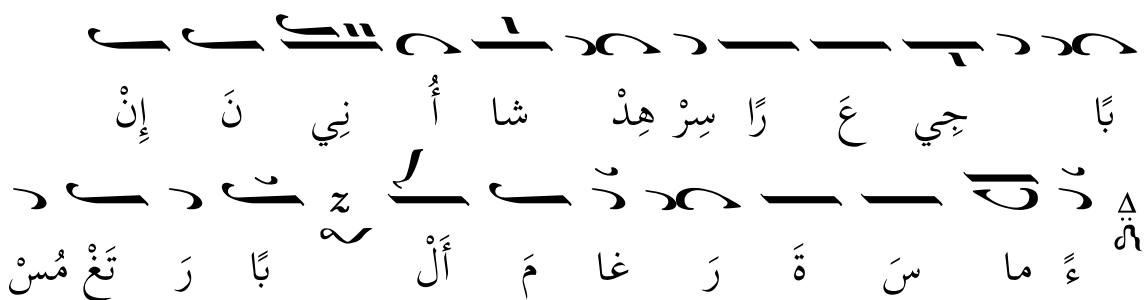 إِنْ نَ نِي أُ شا هِدْ سِرْ رًا عَ جِي بًا
مُسْ تَغْ رَ بًا أَلْ مَ غا رَ ةَ سَ ما ءً